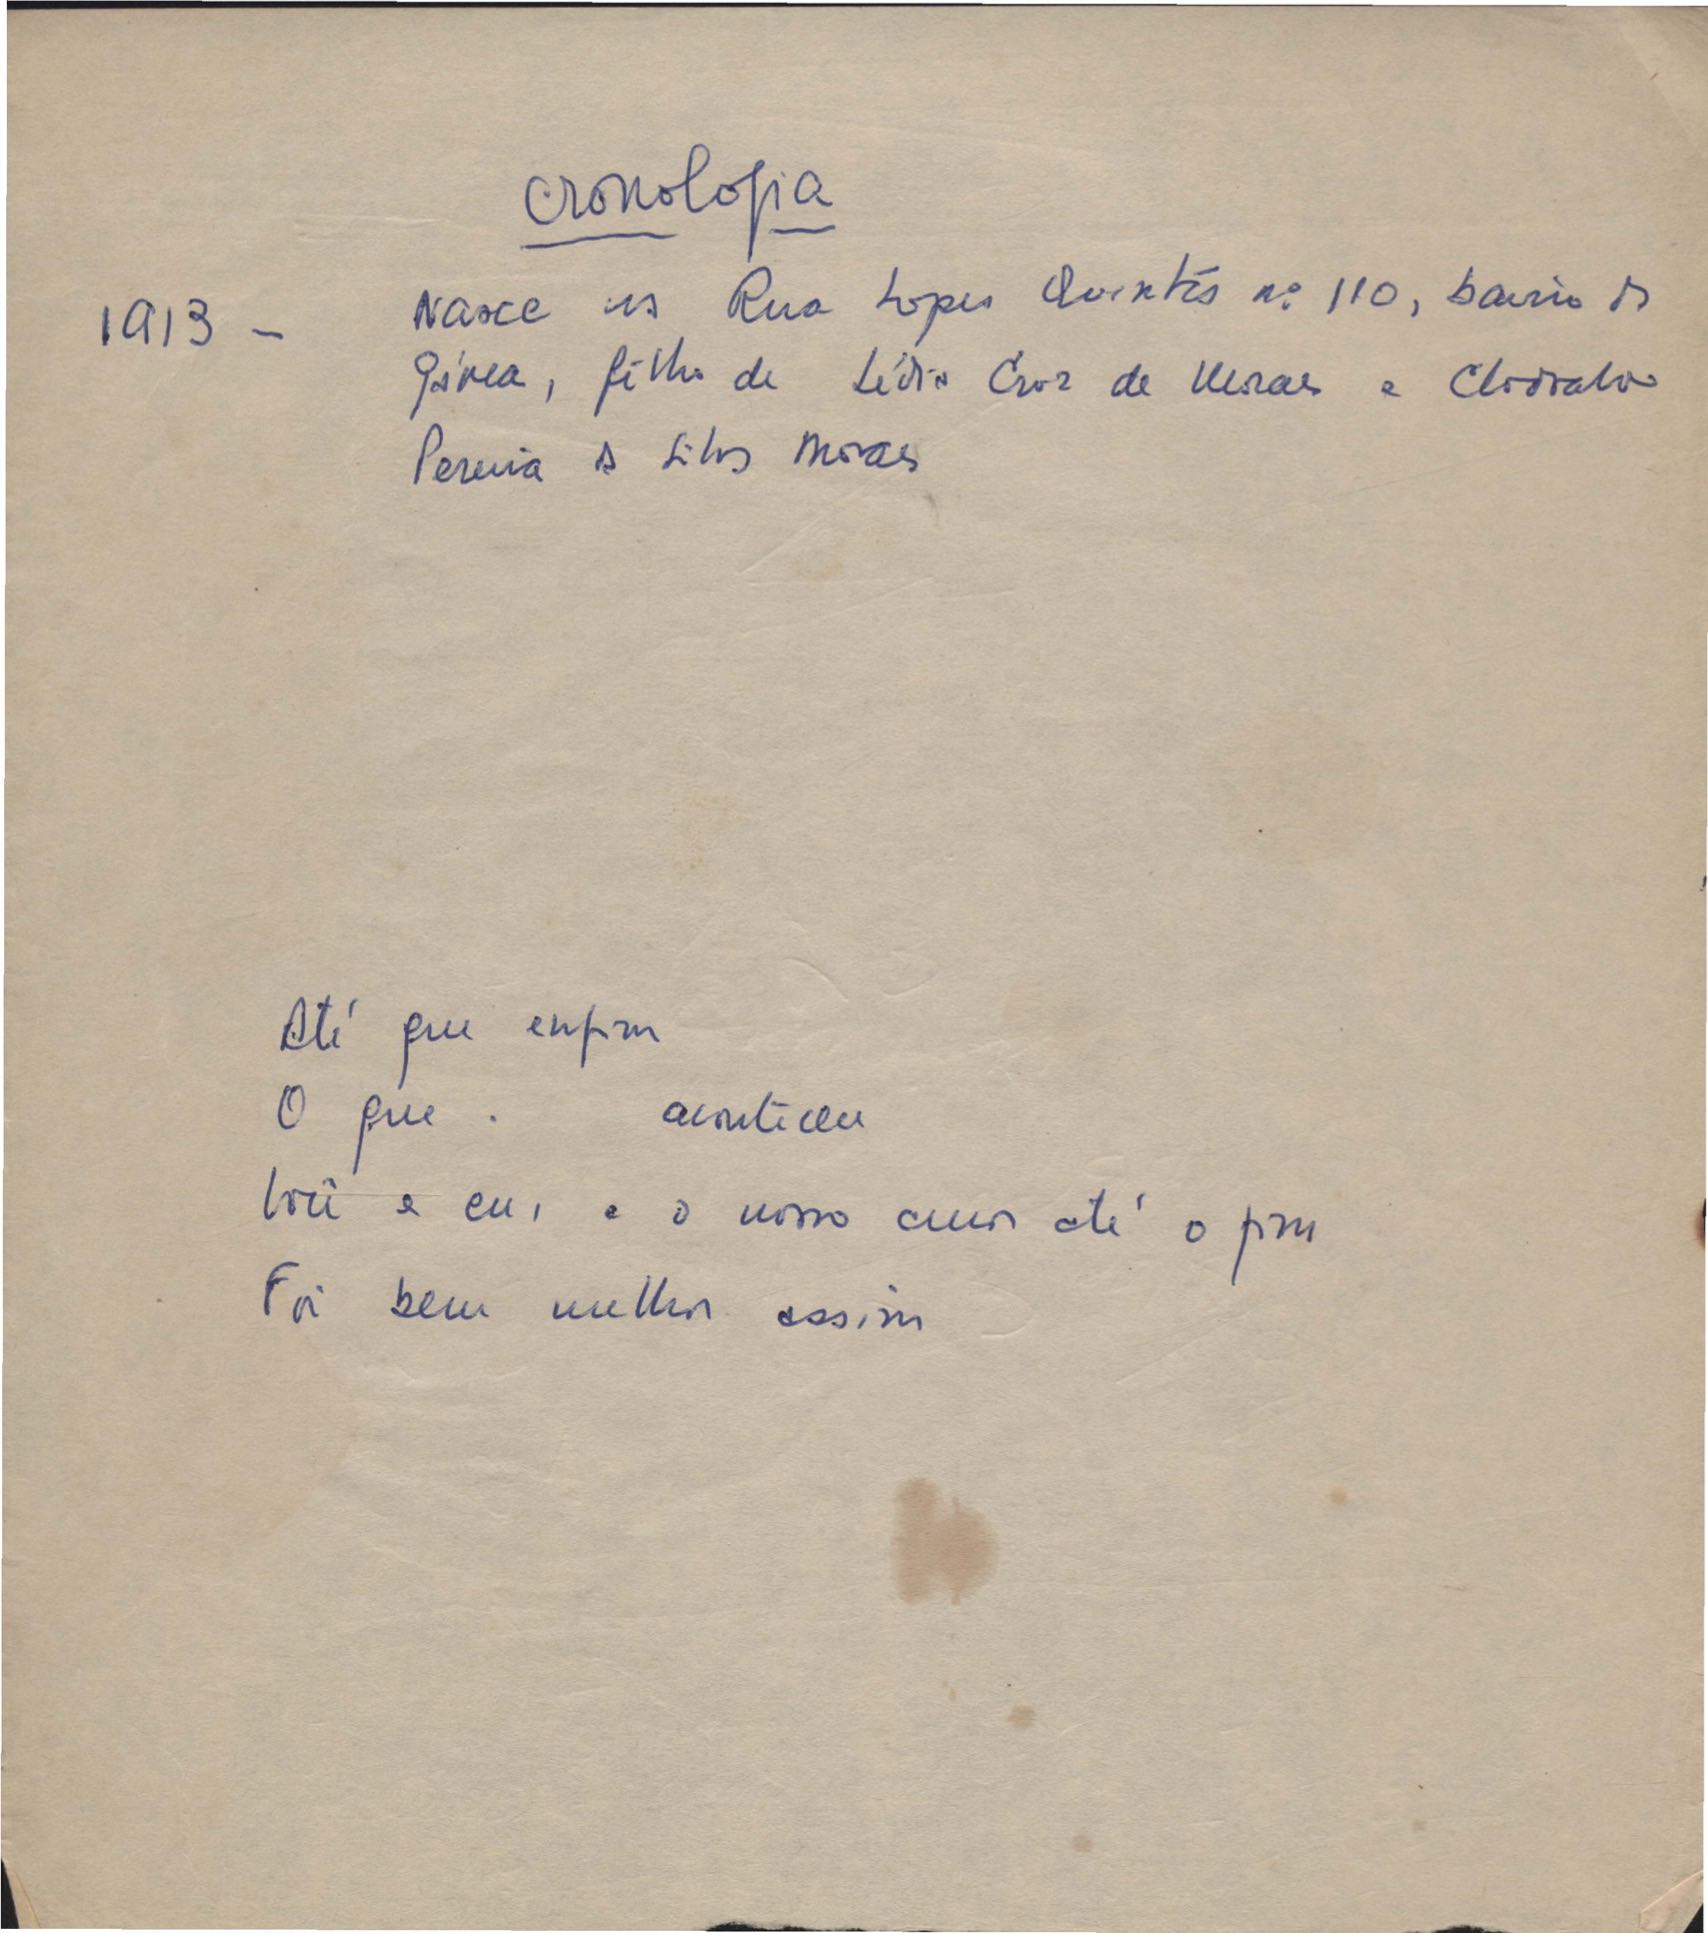 Cronologia
1913 - Nasce na Rua Lopes Quintas nº 110, bairro da
Gávea, filho de Lídia Cruz de Moraes e Clodoaldo
Pereira da Silva Moraes
Até que enfim
O que . aconteceu
Você e eu, e o nosso amor até o fim
Foi bem melhor assim